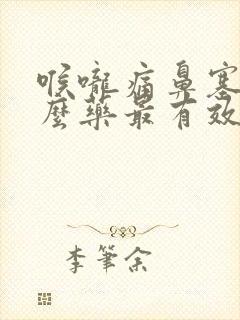 喉嚨痛鼻塞
麼藥最有效
李筆余